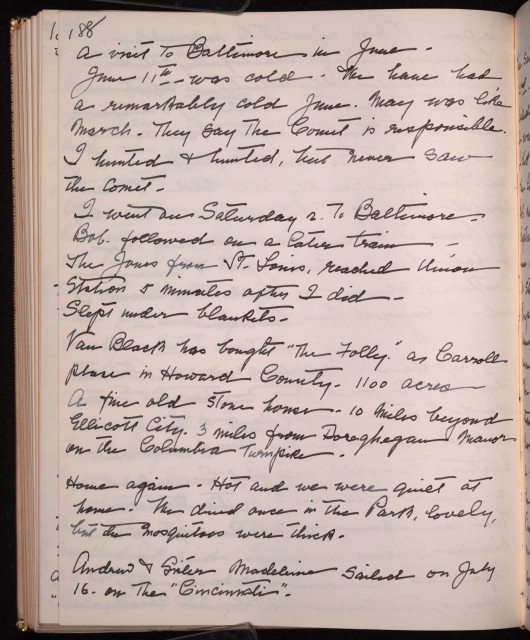 188
A visit to Baltimore in June -
June 11th - was cold - We have had
a remarkably cold June. May was like
March - They say the Comet is responsible.
I hunted & hunted, but never saw
the Comet -
I went on Saturday 2. to Baltimore -
Bob. followed on a later train -
The Jones from St. Louis, reached Union
Station 5 minutes after I did -
Slept under blankets -
Van Black has bought "The Folly." a Carroll
place in Howard County - 1100 acres
A fine old stone house - 10 miles beyond
Ellicott City. 3 miles from Doroghegan Manor
on the Columbia Turnpike -
Home again - Hot and we were quiet at
home - We dined once in the Park, lovely,
but the mosquitoes were thick -
Andrew & Sister Madeline sailed on July
16. on the "Cincinnati" -